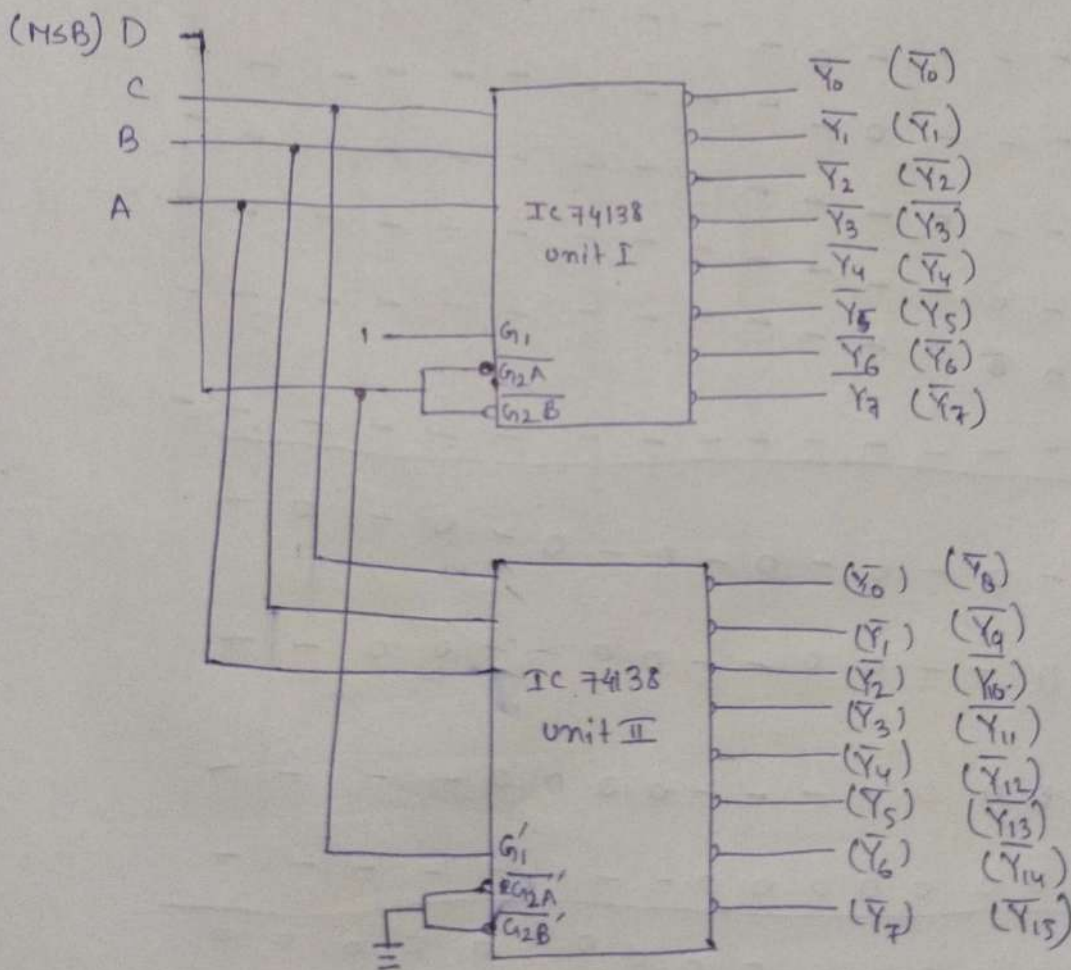 (MSB) D
C
B
A
IC 74138
unit I
1
G1
G̅2̅A̅
G̅2̅B̅
Y̅0̅ (Y̅0̅)
Y̅1̅ (Y̅1̅)
Y̅2̅ (Y̅2̅)
Y̅3̅ (Y̅3̅)
Y̅4̅ (Y̅4̅)
Y̅5̅ (Y̅5̅)
Y̅6̅ (Y̅6̅)
Y̅7̅ (Y̅7̅)
IC 74138
unit II
G1'
G̅2̅A̅'
G̅2̅B̅'
(Y̅0̅) (Y̅8̅)
(Y̅1̅) (Y̅9̅)
(Y̅2̅) (Y̅1̅0̅)
(Y̅3̅) (Y̅1̅1̅)
(Y̅4̅) (Y̅1̅2̅)
(Y̅5̅) (Y̅1̅3̅)
(Y̅6̅) (Y̅1̅4̅)
(Y̅7̅) (Y̅1̅5̅)